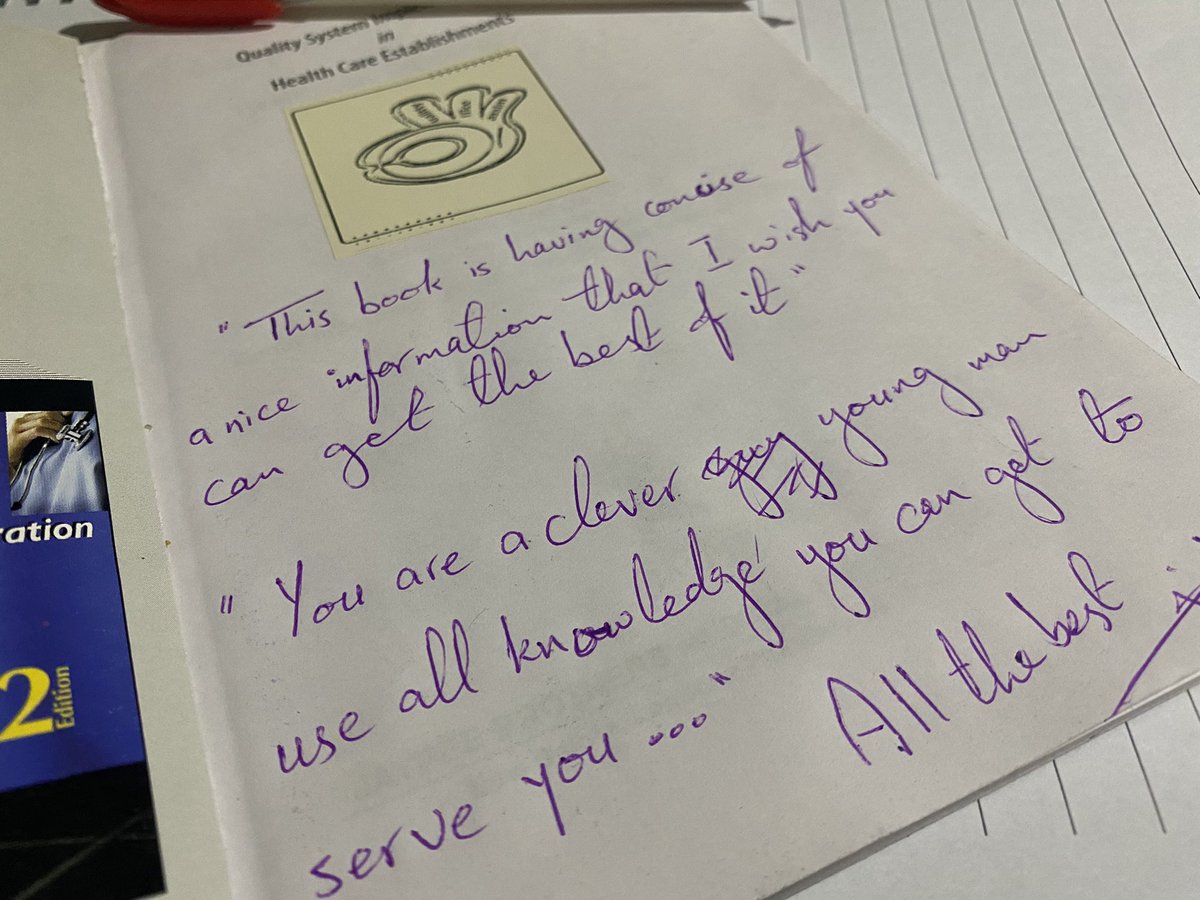 Quality System
in
Health Care Establishments
" This book is having concise of
a nice information that I wish you
can get the best of it "
" You are a clever young man
use all knowledge you can get to
serve you ... "
All the best
ration
2
Edition